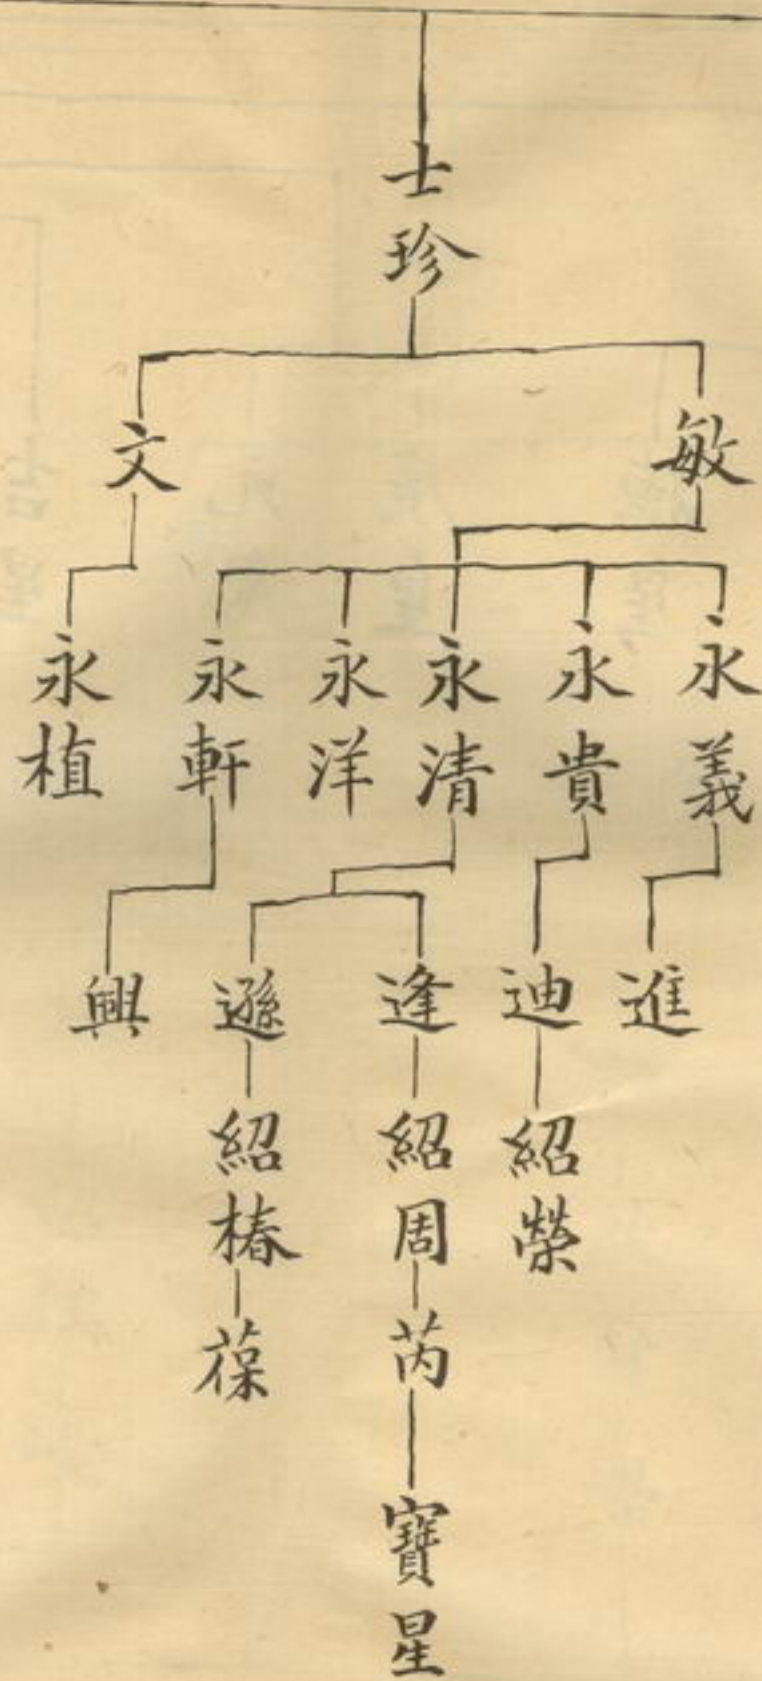 士珍
敏
文
永義
永貴
永清
永洋
永軒
永植
進
迪
逢
遜
興
紹榮
紹周
紹椿
芮
葆
寶星